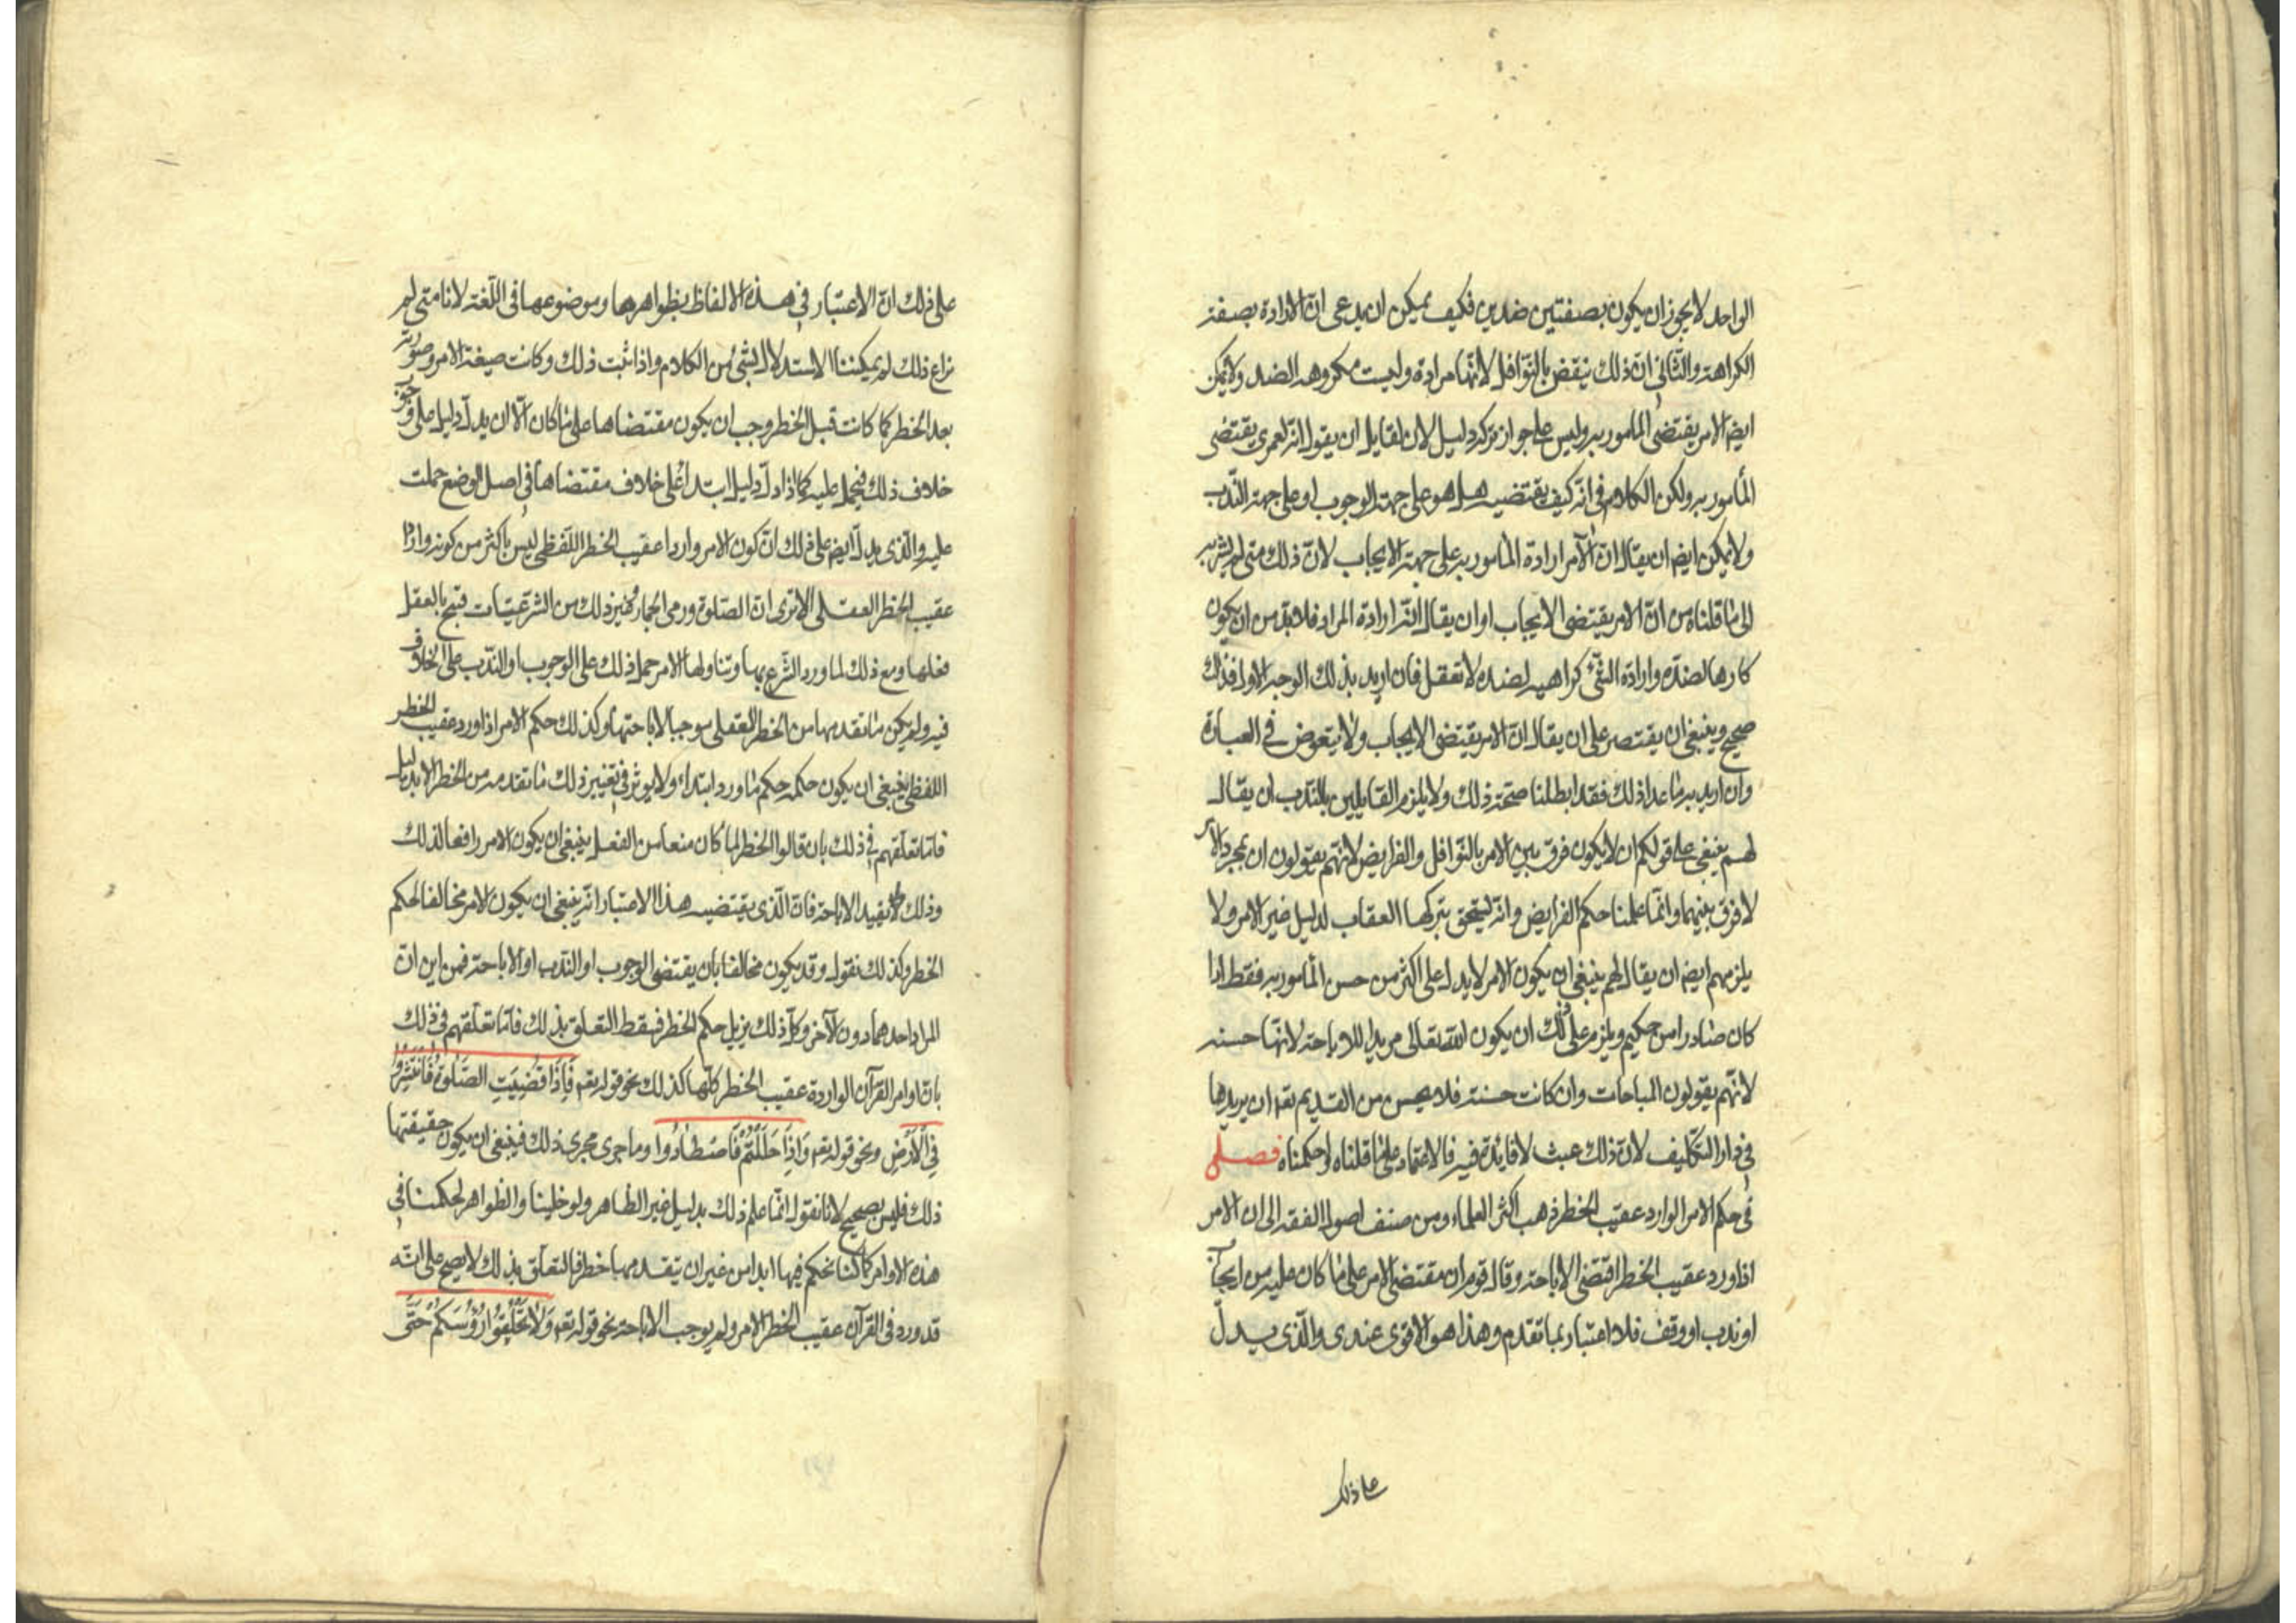 الواحد لا يجوز ان يكون بصفتين ضدين فكيف يمكن ان يدعى ان الارادة بصفة
الكراهة والثاني ان ذلك ينقض بالنوافل لانها مرادة وليست مكروهة الضد ولا يمكن
ايضا الامر يقتضى المأمور به وليس على جواز تركه دليل لان لقايل ان يقول انه لعمرى يقتضى
المأمور به ولكن الكلام في انه كيف يقتضيه هل هو على جهة الوجوب او على جهة الندب
ولا يمكن ايضا ان يقال ان الآمر اراده المأمور به على جهة الايجاب لان ذلك متى لم
الى ما قلناه من ان الامر يقتضى الايجاب او ان يقال انه ارادة المراد فلا بد من ان يكون
كارها لضده وارادة الشئ كراهيه لضده لا تعقل فان اريد بذلك الوجه الاول فذلك
صحيح وينبغى ان يقتصر على ان يقال ان الامر يقتضى الايجاب ولا يتعرض في العبارة
وان اريد به ما عدا ذلك فقد ابطلنا صحة ذلك ولا يلزم القايلين بالندب ان يقال
لهم ينبغى على قولكم ان لا يكون فرق بين الامر بالنوافل والفرايض لانهم يقولون ان بمجرد الامر
لا فرق بينهما وانما علمنا حكم الفرايض وانه يستحق بتركها العقاب لدليل غير الامر ولا
يلزمهم ايضا ان يقال لهم ينبغى ان يكون الامر لا يدل على اكثر من حسن المأمور به فقط اذا
كان صادرا من حكيم ويلزم على ذلك ان يكون الله تعالى مريدا للاباحة لانها حسنه
لانهم يقولون المباحات وان كانت حسنة فلا يحسن من القديم تعه ان يريدها
في دار التكليف لان ذلك عبث لا فائدة فيه فالاعتماد على ما قلناه واحكمناه فصل
في حكم الامر الوارد عقيب الخطر ذهب اكثر العلماء ومن صنف اصول الفقه الى ان الامر
اذا ورد عقيب الخطر اقتضى الاباحة وقال قوم ان مقتضى الامر على ما كان عليه من ايجاب
او ندب او وقف فلا اعتبار بما تقدم وهذا هو الاقوى عندى والذى يدل
على ذلك
على ذلك ان الاعتبار في هذه الالفاظ بظواهرها وموضوعها في اللغة لانا متى لم
نراع ذلك لم يمكننا الاستدلال بشئ من الكلام واذا ثبت ذلك وكانت صيغة الامر وصورته
بعد الخطر كما كانت قبل الخطر وجب ان يكون مقتضاها على ما كان الا ان يدل دليل على
خلاف ذلك فيحمل عليه كما اذا دل دليل ابتداءً على خلاف مقتضاها في اصل الوضع حملت
عليه والذى يدل ايضا على ذلك ان كون الامر واردا عقيب الخطر اللفظى ليس باكثر من كونه واردا
عقيب الخطر العقلى الا ترى ان الصلوة ورمى الجمار وغير ذلك من الشرعيات قبيح بالعقل
فعلها ومع ذلك لما ورد الشرع بها وتناولها الامر حمل ذلك على الوجوب او الندب على الخلاف
فيه ولم يكن ما تقدمها من الخطر العقلى موجبا لاباحتها وكذلك حكم الامر اذا ورد عقيب الخطر
اللفظى ينبغى ان يكون حكمه حكم ما ورد ابتداء ولا يوثر في تغيير ذلك ما تقدمه من الخطر الا بدليل
فاما تعلقهم في ذلك بان قالوا الخطر لما كان منعا من الفعل ينبغى ان يكون الامر رافعا لذلك
وذلك لا يفيد الاباحة فان الذى يقتضيه هذا الاعتبار انه ينبغى ان يكون الامر مخالفا لحكم
الخطر وكذلك نقول وقد يكون مخالفا بان يقتضى الوجوب او الندب او الاباحة فمن اين ان
المراد احدهما دون الآخر وكل ذلك يزيل حكم الخطر فسقط التعلق بذلك فاما تعلقهم في ذلك
بان اوامر القرآن الواردة عقيب الخطر كلها كذلك نحو قوله تعه فَاِذَا قُضِيَتِ الصَّلوةُ فَانْتَشِرُوا
فِي الْاَرْضِ ونحو قوله تعه وَاِذَا حَلَلْتُمْ فَاصْطَادُوا وما جرى مجرى ذلك فينبغى ان يكون حقيقتها
ذلك فليس بصحيح لانا نقول انما علم ذلك بدليل غير الظاهر ولو خلينا والظواهر لحكمنا في
هذه الاوامر كما كنا نحكم فيها ابدا من غير ان يتقدمها خطر فالتعلق بذلك لا يصح على انه
قد ورد في القرآن عقيب الخطر الامر ولم يوجب الاباحة نحو قوله تعه وَلَا تَحْلِقُوا رُؤُسَكُمْ حَتّى